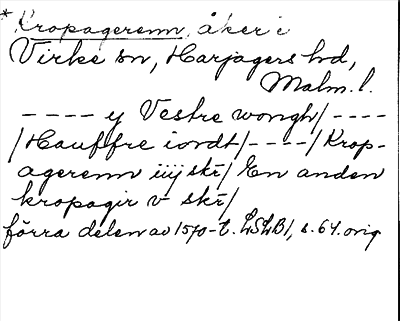 * Kropagerenn, åker i
Virke sn, Harjagers hd,
Malm. l.
---- y Vestre wongh/----
/Hauffre iordt/----/Krop-
agerenn iiij skr/ En anden
kropagir v skr/
förra delen av 1570-t. LSLB1, s. 64. orig